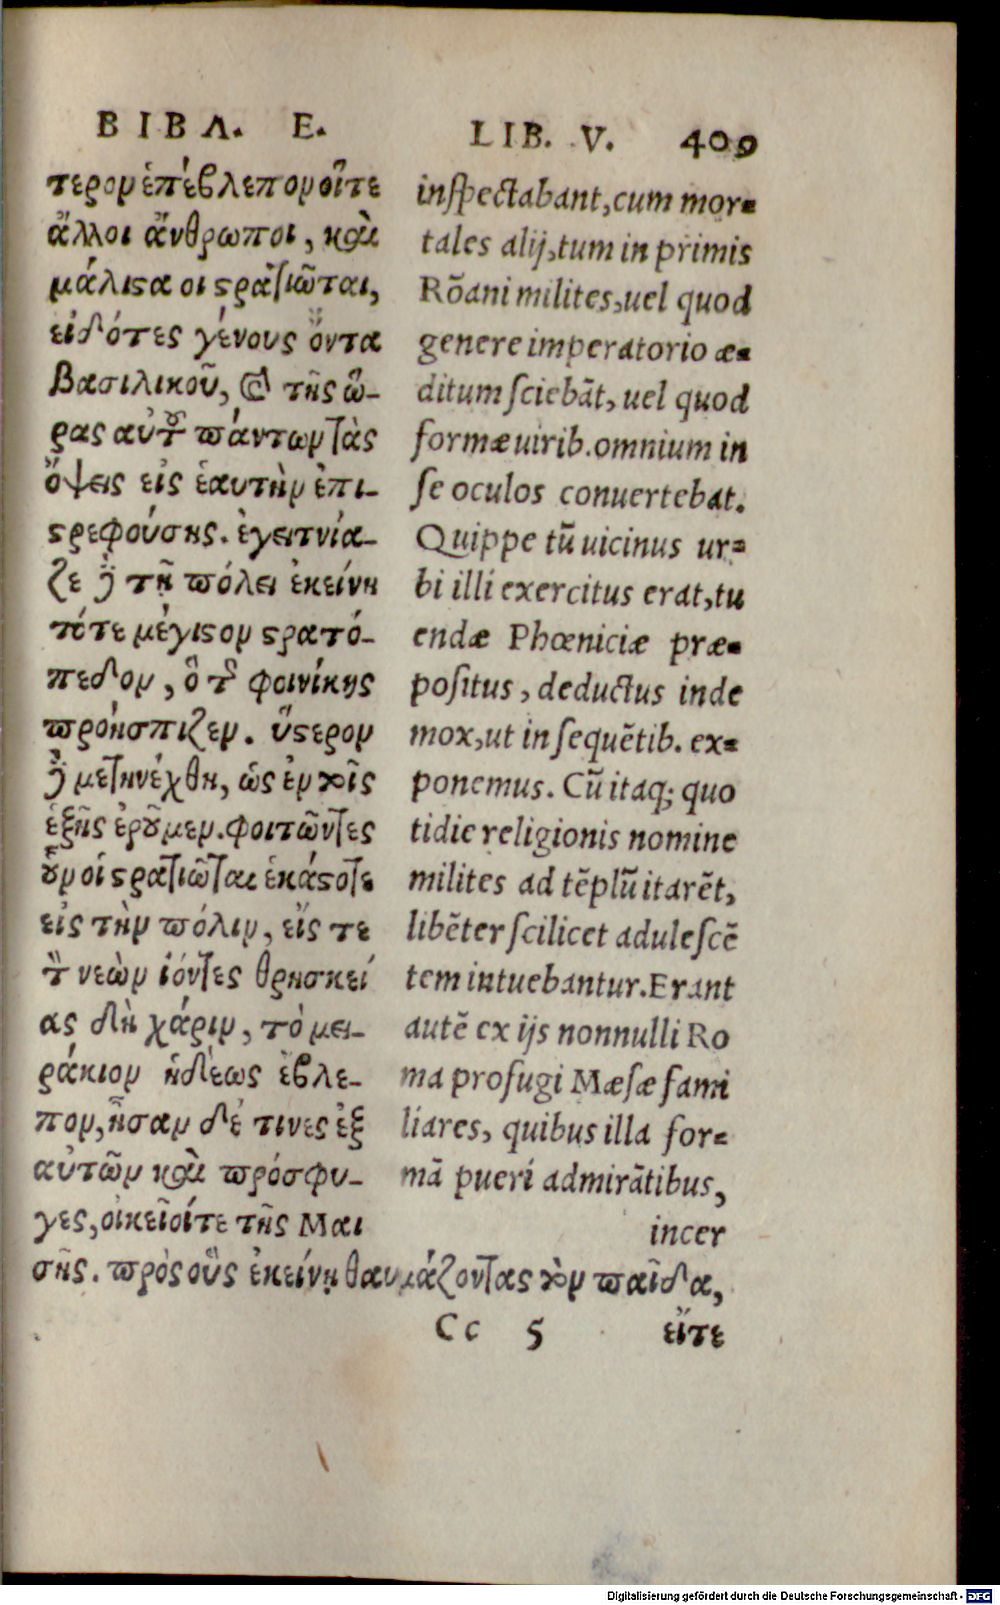 ΒΙΒΛ. Ε.
τερον ἐπέβλεπον οἵτε
ἄλλοι ἄνθρωποι, καὶ
μάλιϛα οι ϛρατιῶται,
εἰδότες γένους ὄντα
βασιλικοῦ, καὶ τῆς ὥ-
ρας αὐτοῦ πάντων τὰς
ὄψεις εἰς ἑαυτὴν ἐπι-
ϛρεφούσης. ἐγειτνία-
ζε δὲ τῇ πόλει ἐκείνῃ
τότε μέγιϛον ϛρατό-
πεδον, ὃ τῆς φοινίκης
προήσπιζεν. ὕϛερον
δὲ μετηνέχθη, ὡς ἐν τοῖς
ἑξῆς ἐροῦμεν. φοιτῶντες
οὖν οἱ ϛρατιῶται ἑκάϛοτε
εἰς τὴν πόλιν, εἴς τε
τὸν νεὼν ἰόντες θρησκεί
ας δὴ χάριν, τὸ μει-
ράκιον ἡδέως ἔβλε-
πον, ἦσαν δέ τινες ἐξ
αὐτῶν καὶ πρόσφυ-
γες, οἰκεῖοίτε τῆς Μαι
σῆς. πρὸς οὓς ἐκείνη θαυμάζοντας τὸν παῖδα,
LIB. V. 409
inſpectabant, cum mor-
tales alij, tum in primis
Rōani milites, uel quod
genere imperatorio æ-
ditum ſciebāt, uel quod
formæ uirib. omnium in
ſe oculos conuertebat.
Quippe tū uicinus ur-
bi illi exercitus erat, tu
endæ Phœniciæ præ-
poſitus, deductus inde
mox, ut in ſequētib. ex-
ponemus. Cū itaq; quo
tidie religionis nomine
milites ad tēplū itarēt,
libēter ſcilicet aduleſcē
tem intuebantur. Erant
autē ex ijs nonnulli Ro
ma profugi Mæſæ fami
liares, quibus illa for-
mā pueri admirātibus,
incer
Cc 5 εἴτε
Digitalisierung gefördert durch die Deutsche Forschungsgemeinschaft - DFG